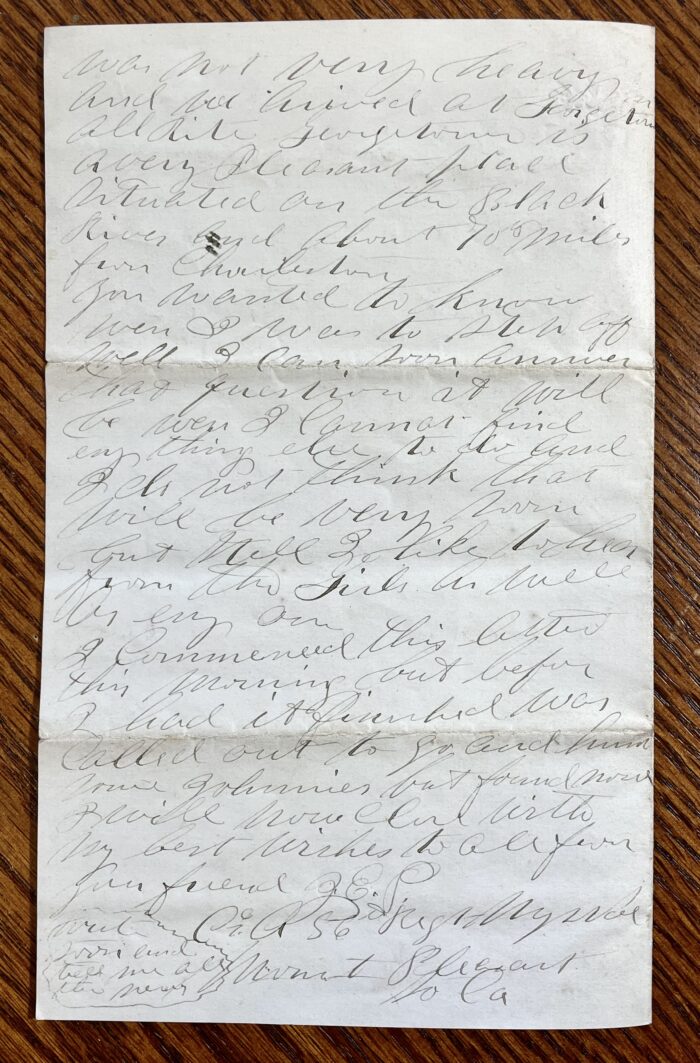 was not very heavy
and we arived at Georgetown
all Rite Georgetown is
a very Pleasant place
situated on the Black
River and about 70 miles
from Charleston
you wanted to know
wen I was to step off
well I can soon answer
that question it will
be wen I Cannot find
eny thing else to do and
I do not think that
will be very soon
but still I like to hear
from the girls as well
as eny one
I Commenced this letter
this morning but befor
I had it finished was
Called out to go and hunt
some Johnnies but found none
I will now Close with
my best wishes to all from
your friend
Co A 56 Regt N Y
Mount Pleasant
So Ca
write
soon and
tell me all
the news